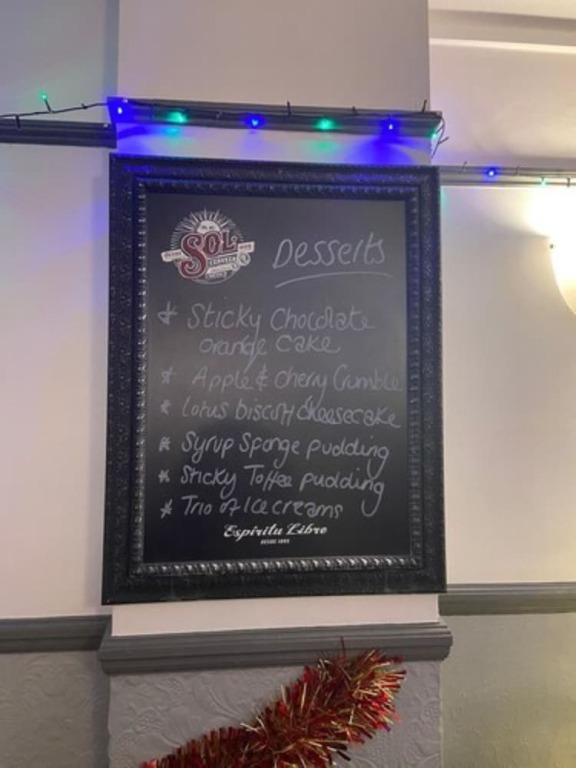 SOL
CERVEZA
Desserts
* Sticky Chocolate
orange cake
* Apple & cherry Crumble
* Lotus biscoff cheesecake
* Syrup Sponge pudding
* Sticky Toffee pudding
* Trio of Ice creams
Espíritu Libre
DESDE 1899